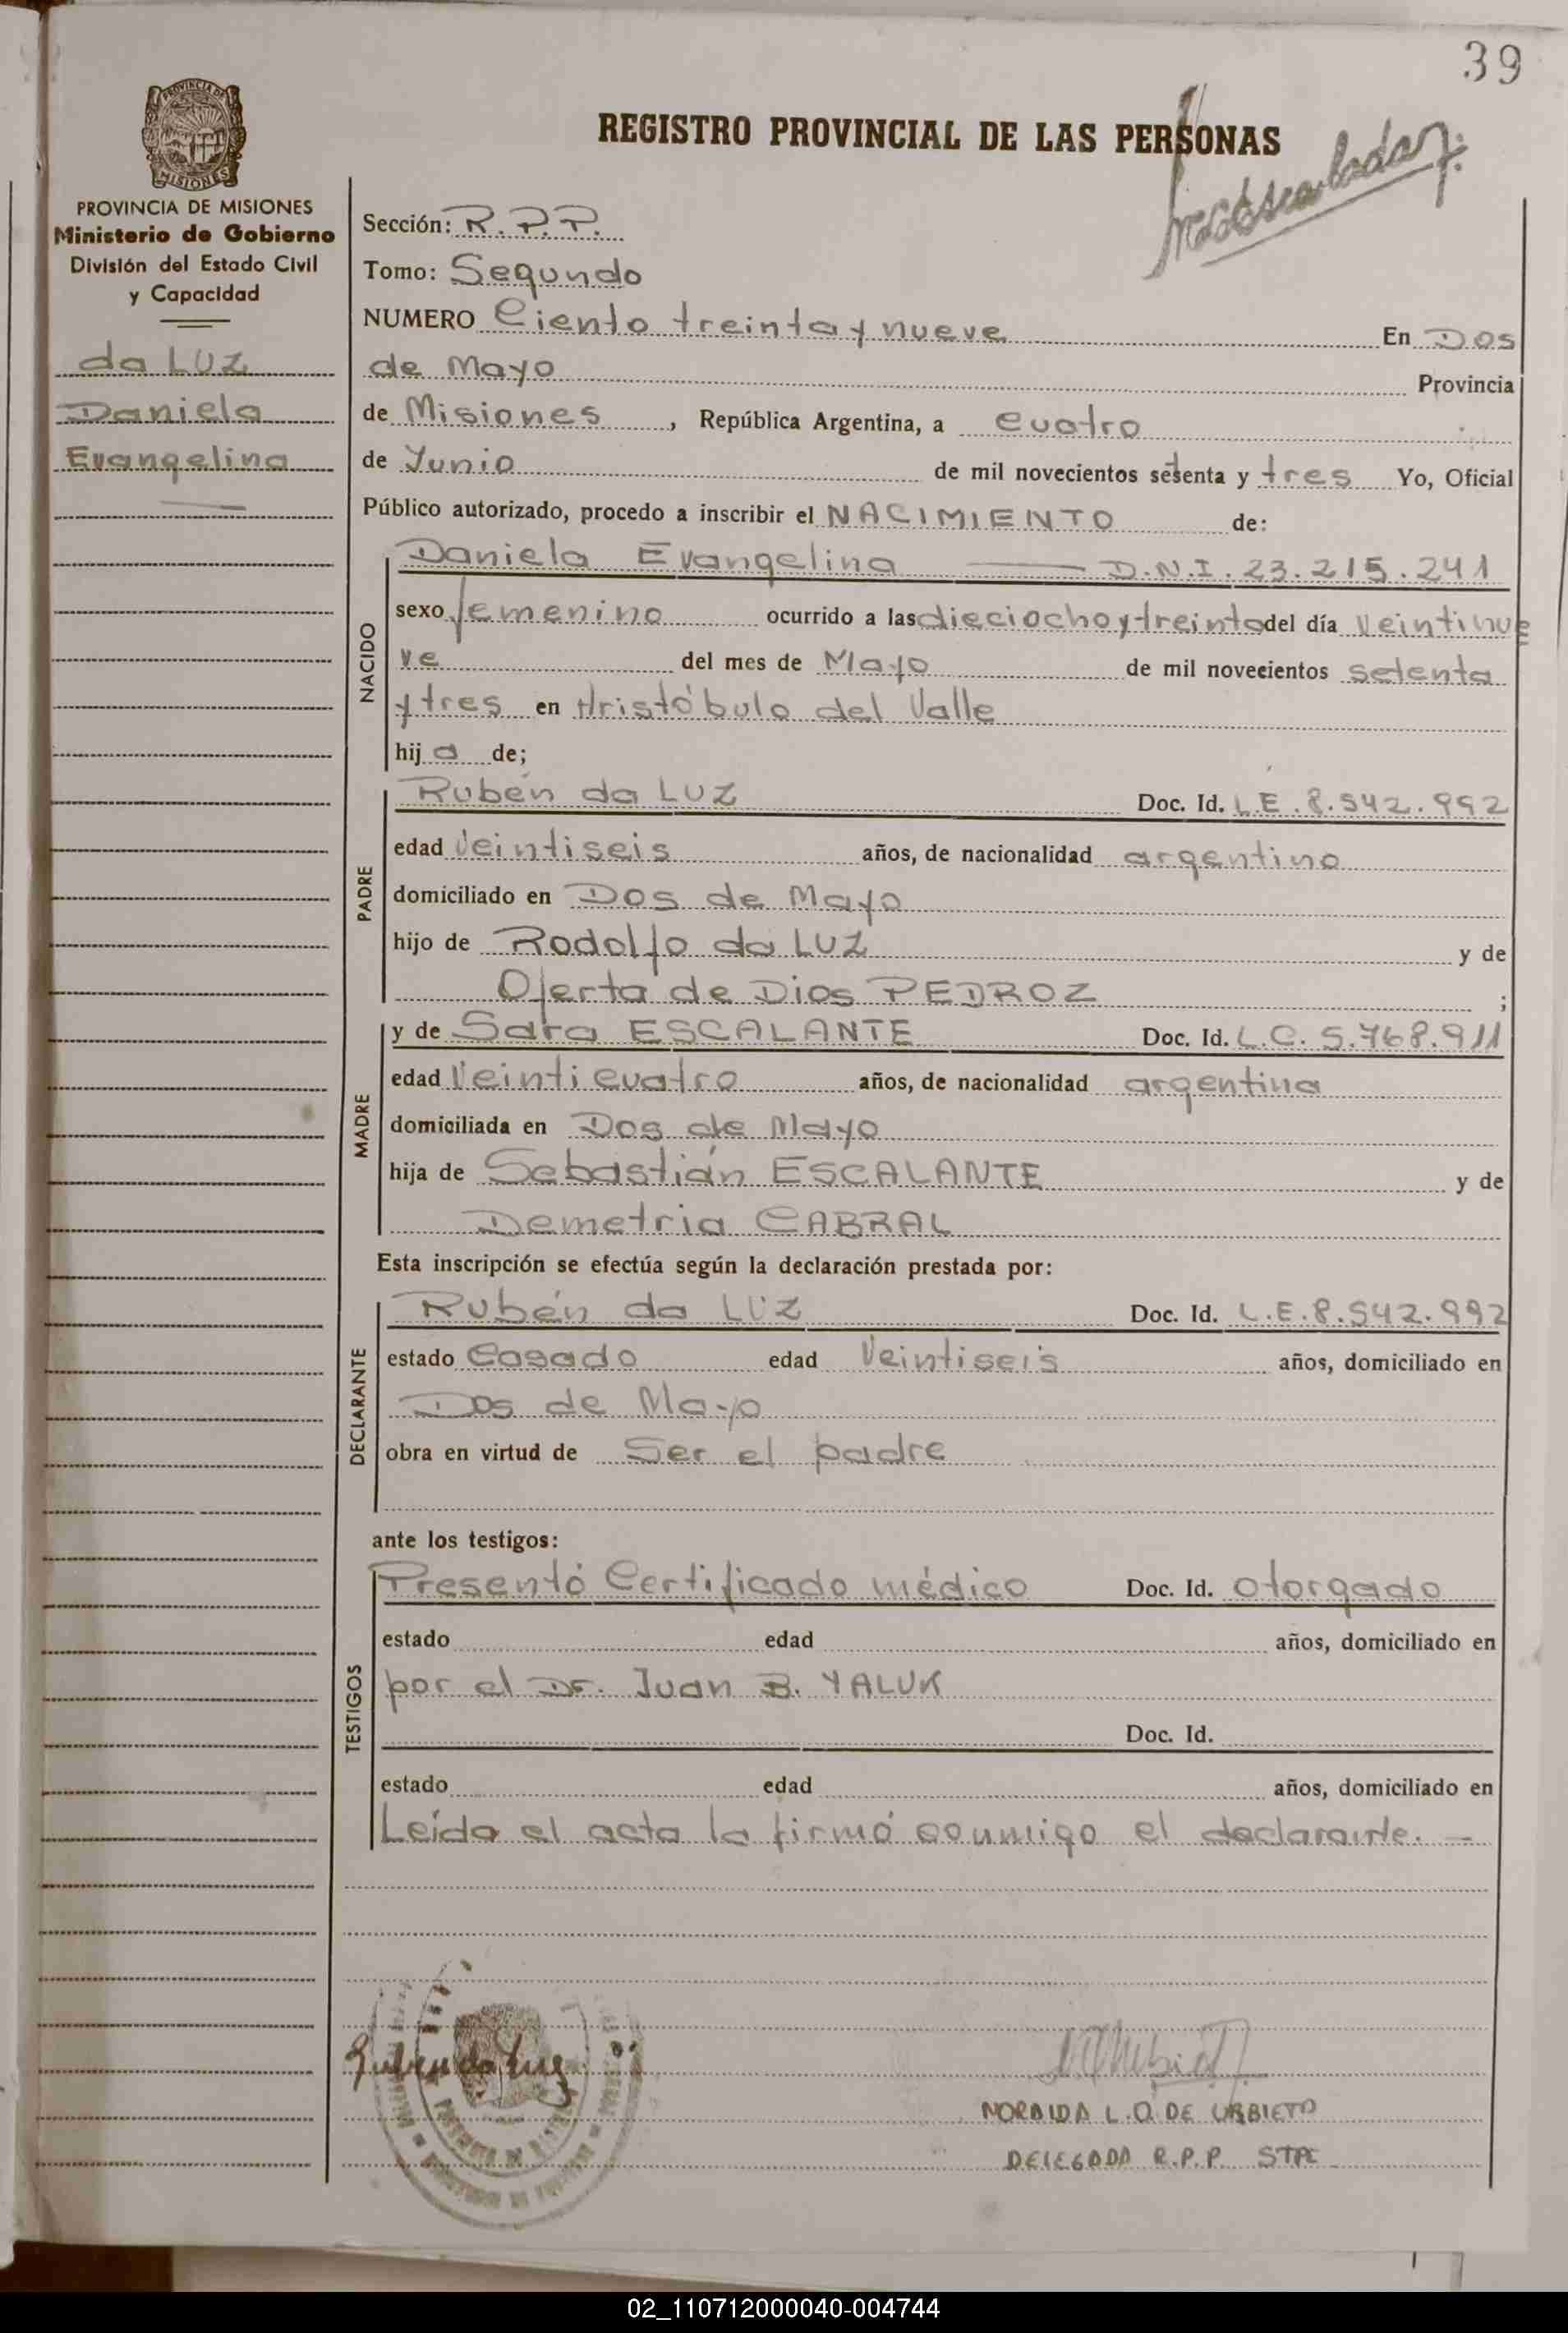 39
REGISTRO PROVINCIAL DE LAS PERSONAS
PROVINCIA DE
MISIONES
PROVINCIA DE MISIONES
Ministerio de Gobierno
División del Estado Civil
y Capacidad
da LUZ
Daniela
Evangelina
Sección: R.P.P.
Tomo: Segundo
NUMERO Ciento treinta y nueve En Dos
de Mayo Provincia
de Misiones, República Argentina, a cuatro
de Junio de mil novecientos setenta y tres Yo, Oficial
Público autorizado, procedo a inscribir el NACIMIENTO de:
NACIDO
Daniela Evangelina — D.N.I. 23.215.241
sexo femenino ocurrido a las dieciocho y treinta del día veintinue
ve del mes de Mayo de mil novecientos setenta
y tres en Aristóbulo del Valle
hija de;
PADRE
Rubén da LUZ Doc. Id. L.E. 8.542.992
edad veintiseis años, de nacionalidad argentino
domiciliado en Dos de Mayo
hijo de Rodolfo da LUZ y de
Oferta de Dios PEDROZ ;
MADRE
y de Sara ESCALANTE Doc. Id. L.C. 5.768.911
edad Veinticuatro años, de nacionalidad argentina
domiciliada en Dos de Mayo
hija de Sebastián ESCALANTE y de
Demetria CABRAL
Esta inscripción se efectúa según la declaración prestada por:
DECLARANTE
Rubén da LUZ Doc. Id. L.E. 8.542.992
estado Casado edad Veintiseis años, domiciliado en
Dos de Mayo
obra en virtud de Ser el padre
ante los testigos:
TESTIGOS
Presentó Certificado médico Doc. Id. otorgado
estado edad años, domiciliado en
por el Dr. Juan B. YALUK
Doc. Id.
estado edad años, domiciliado en
Leída el acta la firmó conmigo el declarante. —
Ruben da Luz
NORAIDA L.O. DE URBIETA
DELEGADA R.P.P.
02_110712000040-004744